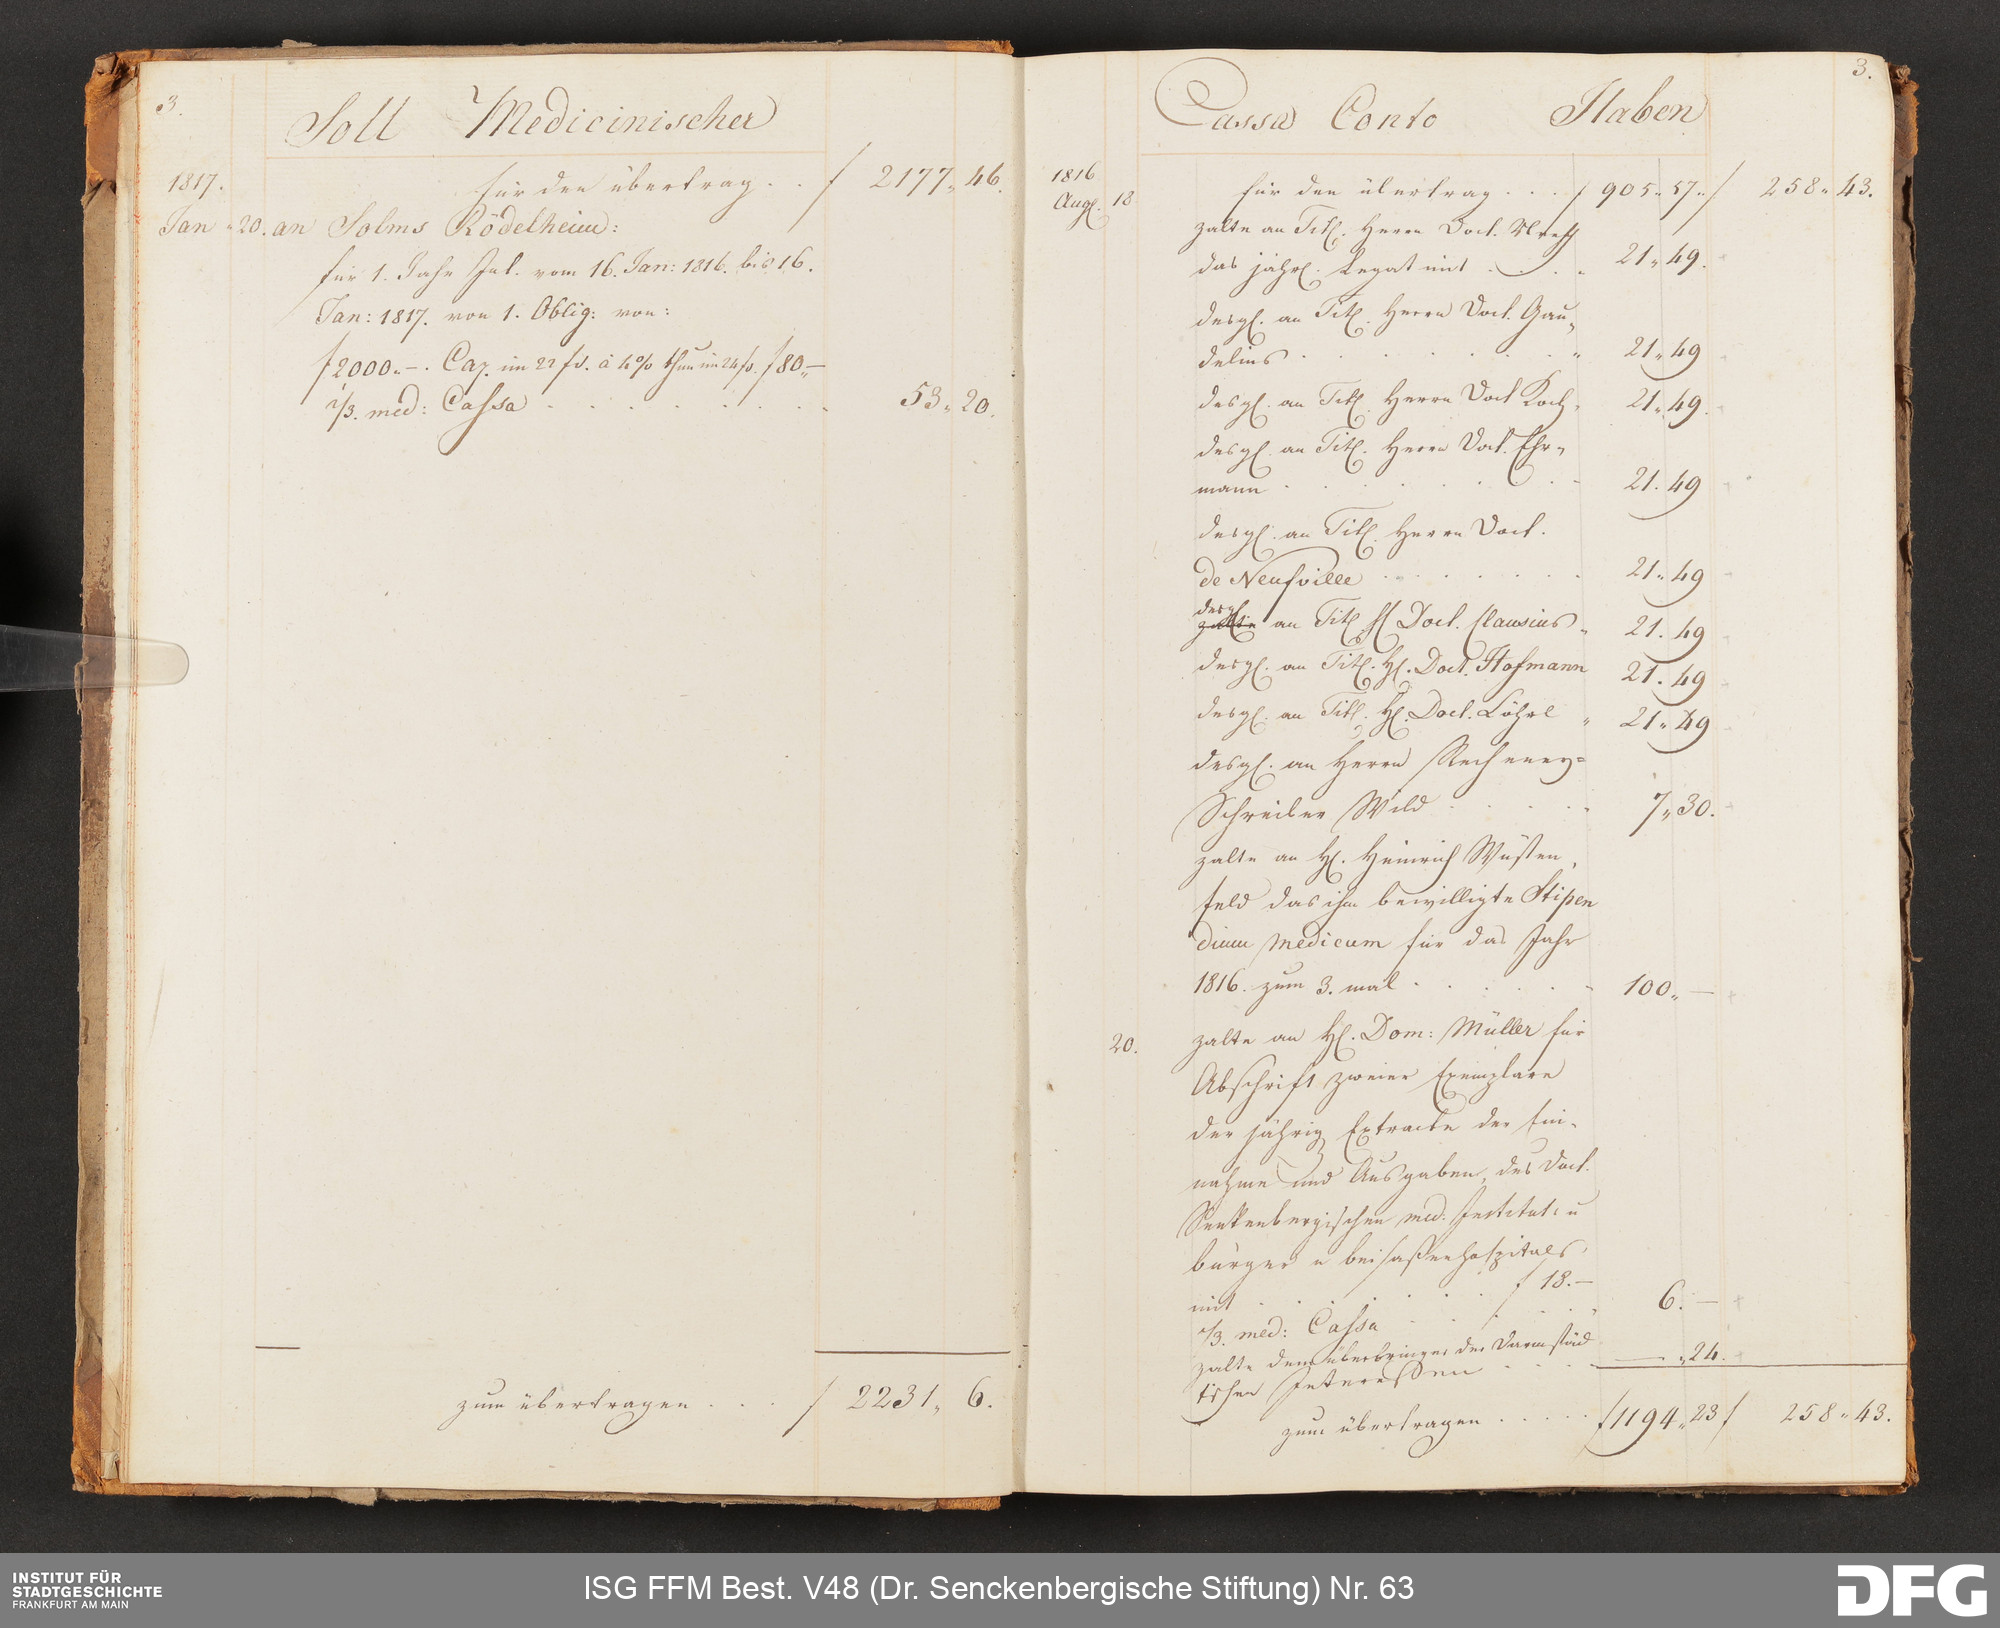 3.
Soll Medicinischer
1817.
für den übertrag . . f 2177 „ 46.
Jan „ 20. an Solms Rödelheim:
für 1. Jahr Int. vom 16. Jan: 1816. bis 16.
Jan: 1817. von 1. Oblig: von:
f 2000„—. Cap. im 22 fs. à 4% thun im 24 fs. f 80„—
2/3. med: Cassa . . . . . . . 53„ 20.
zum übertragen . . . f 2231„ 6.
3.
Cassa Conto Haben
1816
Aug. 18
für den übertrag . . . f 905„ 57„ f 258„ 43.
zalte an Tit. Herrn Doct.
das jährl. Legat mit . . . . 21„ 49.
desgl. an Tit. Herrn Doct. Gau„
delius . . . . . . . „ 21„ 49
desgl. an Tit. Herrn Doct Koch, 21„ 49.
desgl. an Tit. Herrn Doct. Ehr„
mann . . . . . . . 21. 49
desgl. an Tit. Herrn Doct.
de Neufville . . . . . . . 21„ 49
desgl.
zalte an Tit. H. Doct. Clausius „ 21. 49
desgl. an Tit. H. Doct. Hofmann 21. 49
desgl. an Tit. H. Doct. Löhrl „ 21„ 49
desgl. an Herrn Recheney=
Schreiber Wild . . . . . 7„ 30.
zalte an H. Heinrich Wüsten„
feld das ihm bewilligte Stipen
dium medicum für das Jahr
1816. zum 3. mal . . . . . . 100„ —
20. zalte an H. Dom: Müller für
Abschrift zweier Exemplare
der jährig Extracte der Ein„
nahme und Ausgaben, des Doct.
Senkenbergischen med. Institut: u
bürger u beisaßenhospitals,
mit . . . . . . . f 18.—
1/3. med: Cassa . . . . 6. —
zalte dem überbringer der Darmstäd
tischen Interessen . . . . — „ 24.
zum übertragen . . . . . f 1194„ 23 f 258„ 43.
INSTITUT FÜR
STADTGESCHICHTE
FRANKFURT AM MAIN
ISG FFM Best. V48 (Dr. Senckenbergische Stiftung) Nr. 63
DFG